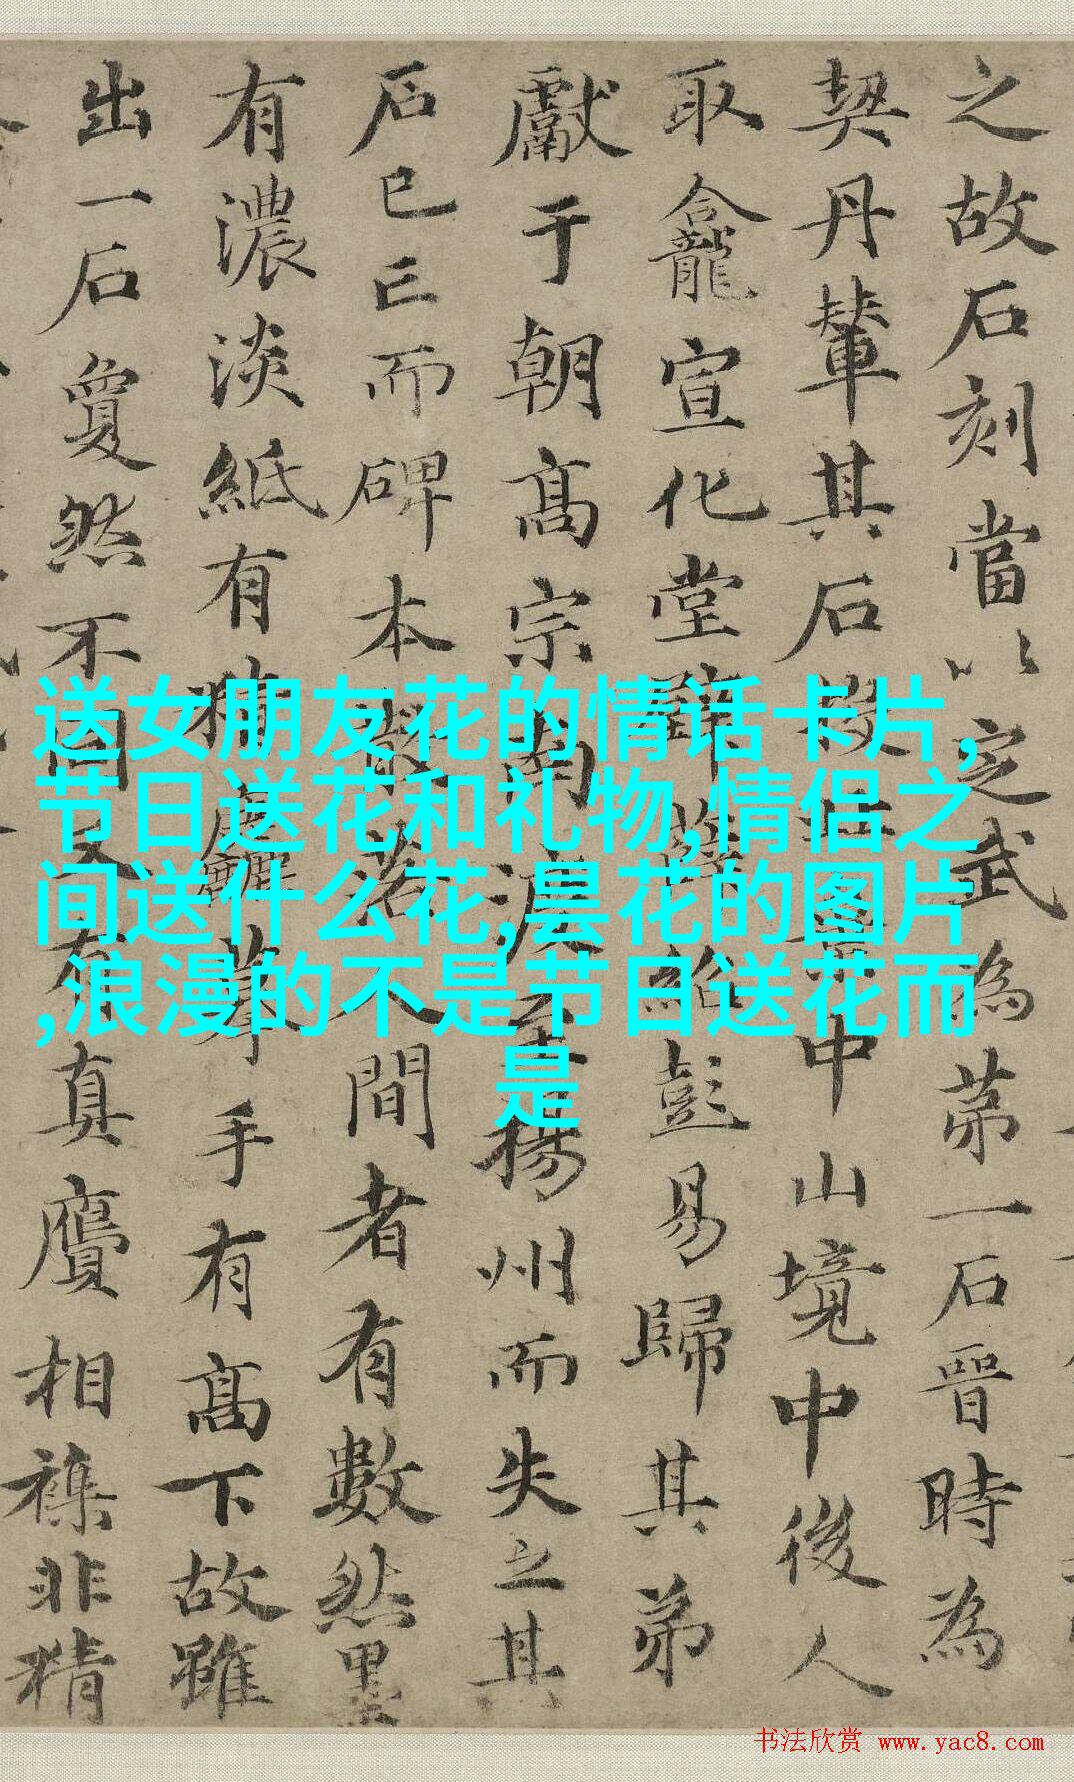 之故石刻當以定武為第一石晉時為
契丹輦其石中山境中後人
取龕宣化堂薛紹彭易歸其弟
獻于朝高宗南渡至揚州而失之其
石已亡而碑本散落人間者有數然墨
有濃淡紙有精麤摹手有高下故雖
出一石敻然不同又有真贗相襍非精
送女朋友花的情话卡片,
节日送花和礼物,情侣之
间送什么花,昙花的图片
,浪漫的不是节日送花而
是
书法欣赏 www.yac8.com